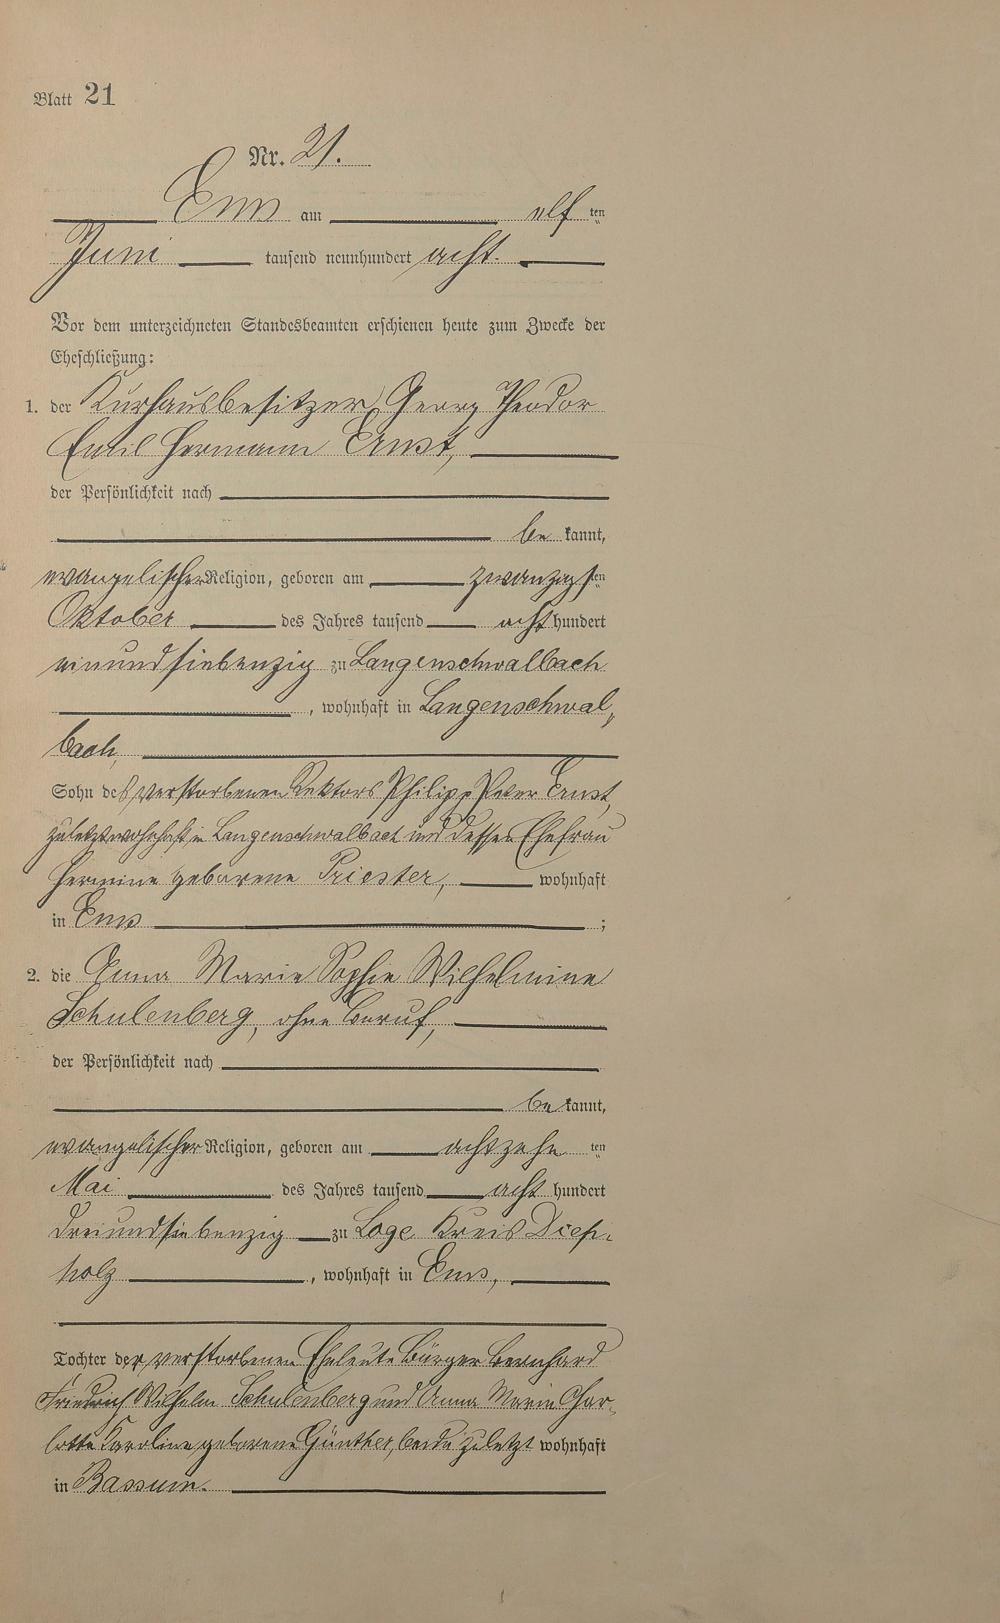 Blatt 21
Nr. 21.
Ems am elf ten
Juni tausend neunhundert acht.
Vor dem unterzeichneten Standesbeamten erschienen heute zum Zwecke der
Eheschließung:
1. der Kurhausbesitzer Georg Theodor
Emil Hermann Ernst,
der Persönlichkeit nach
be kannt,
evangelischer Religion, geboren am zwanzigsten
Oktober des Jahres tausend acht hundert
einundsiebenzig zu Langenschwalbach
, wohnhaft in Langenschwal„
bach,
Sohn des verstorbenen Rektors Philipp Peter Ernst,
zuletzt wohnhaft in Langenschwalbach und dessen Ehefrau
Hermine geborene Priester, wohnhaft
in Ems ;
2. die Anna Marie Sophie Wilhelmine
Schulenberg, ohne Beruf,
der Persönlichkeit nach
be kannt,
evangelischer Religion, geboren am achtzehn ten
Mai des Jahres tausend acht hundert
dreiundsiebenzig zu Loge Kreis Diep„
holz , wohnhaft in Ems,
Tochter der verstorbenen Eheleute Bürger Bernhard
Friedrich Wilhelm Schulenberg und Anna Marie Char„
lotte Karoline geborene Günther, beide zuletzt wohnhaft
in Bassum.